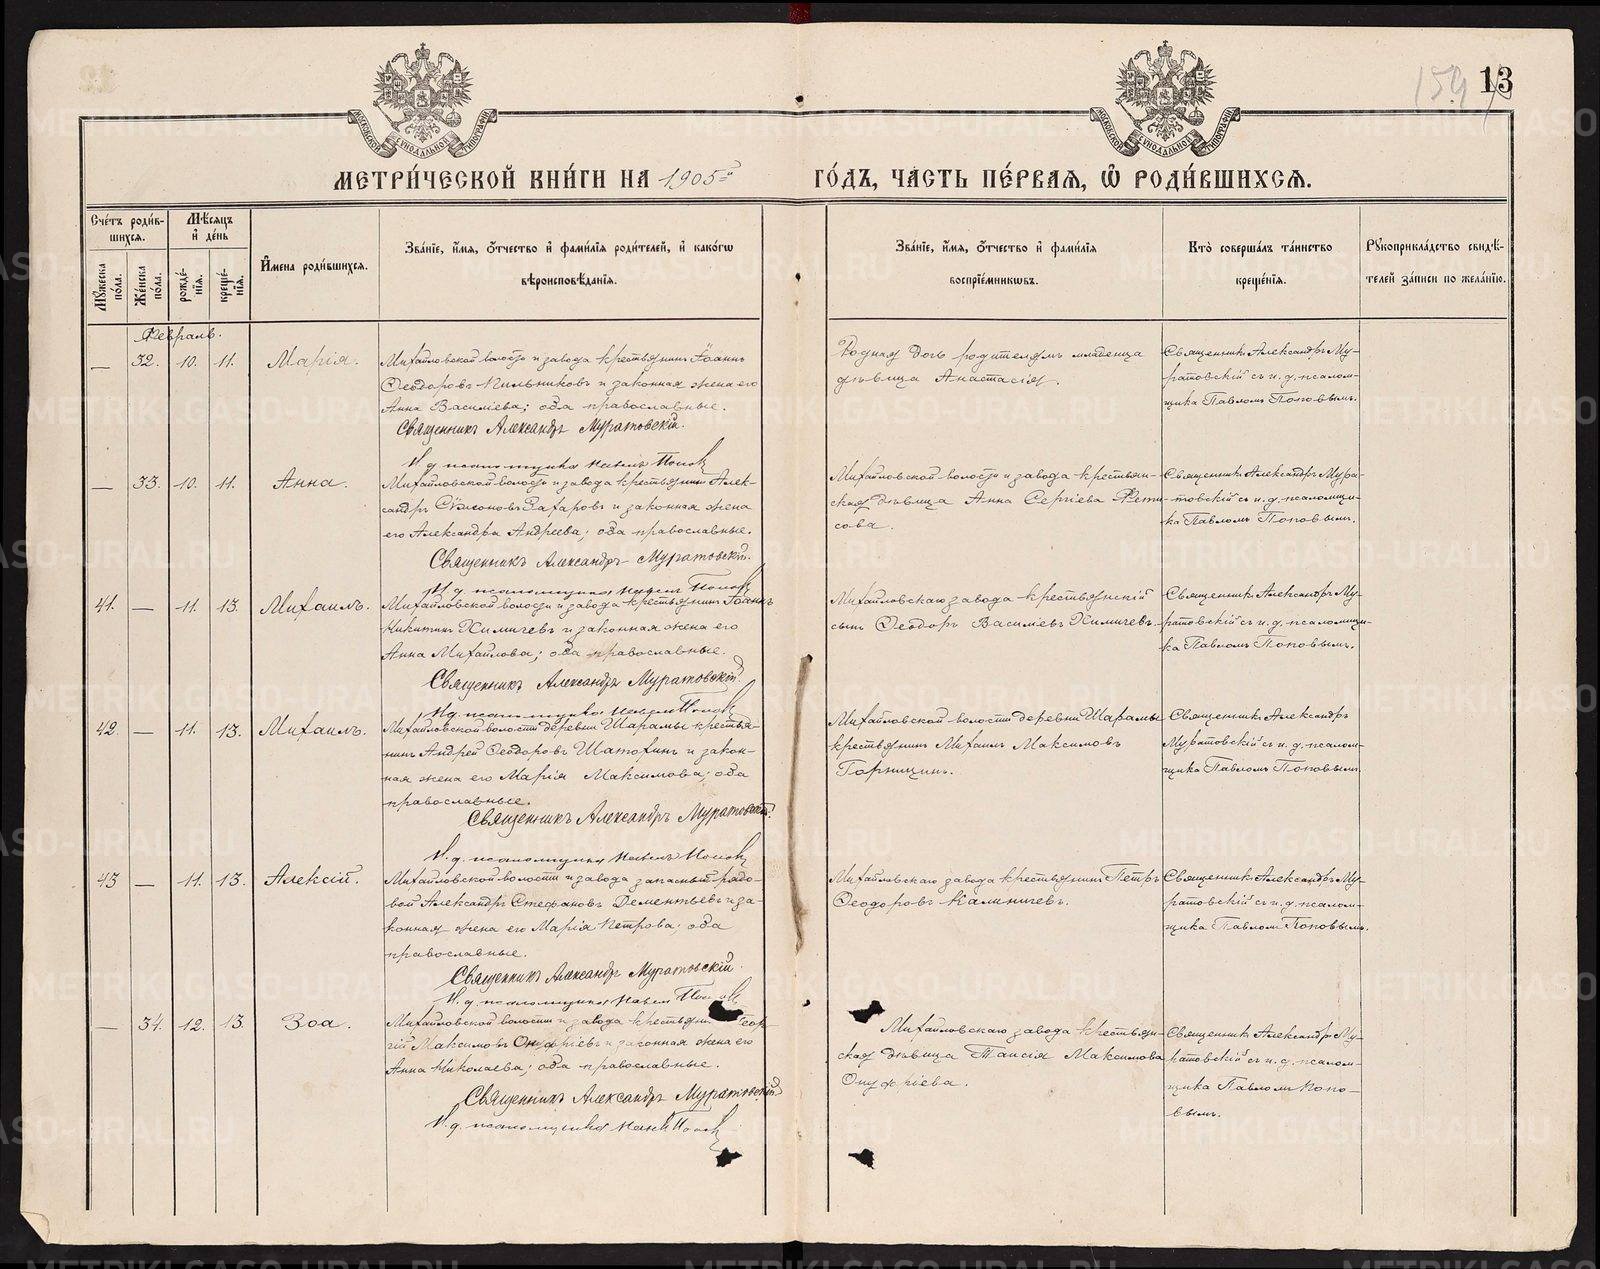 159
13
МОСКОВСКОЙ СѴНОДАЛЬНОЙ ТИПОГРАФІИ
МОСКОВСКОЙ СѴНОДАЛЬНОЙ ТИПОГРАФІИ
МЕТРИ́ЧЕСКОЙ КНИ́ГИ НА 1905й ГО́ДЪ, ЧА́СТЬ ПЕ́РВАѦ, Ѡ҆ РОДИ́ВШИХСѦ.
Сче́тъ роди́в-
шихсѧ.
Мѹжеска по́ла.
Же́нска по́ла.
Мѣ́сѧцъ
и҆ де́нь
рожде́-
нїѧ.
креще́-
нїѧ.
И҆мена роди́вшихсѧ.
Зва́нїе, и҆́мѧ, ѻ҆́тчество и҆ фами́лїѧ роди́телей, и҆ како́гѡ
вѣроисповѣ́данїѧ.
Зва́нїе, и҆́мѧ, ѻ҆́тчество и҆ фами́лїѧ
воспрїе́мникѡвъ.
Кто̀ соверша́лъ та́инство
креще́нїѧ.
Рѹкоприкла́дство свидѣ́-
телей за́писи по жела́нїю.
Февраль.
— 32. 10. 11. Марія.
Михайловской волости и завода крестьянинъ Іоаннъ
Ѳеодоровъ Пильниковъ и законная жена его
Анна Василіева; оба православные.
Священникъ Александръ Муратовскій.
И. д. псаломщика Павелъ Поповъ
Родная дочь родителямъ младенца
дѣвица Анастасія.
Священникъ Александръ Му-
ратовскій съ и. д. псалом-
щика Павломъ Поповымъ.
— 33. 10. 11. Анна.
Михайловской волости и завода крестьянинъ Алек-
сандръ Сѵмеоновъ Захаровъ и законная жена
его Александра Андреева; оба православные.
Священникъ Александръ Муратовскій.
И. д. псаломщика Павелъ Поповъ
Михайловской волости и завода крестьян-
ская дѣвица Анна Сергіева Фети-
сова.
Священникъ Александръ Мура-
товскій съ и. д. псаломщи-
ка Павломъ Поповымъ.
41. — 11. 13. Михаилъ.
Михайловской волости и завода крестьянинъ Іоаннъ
Никитинъ Химичевъ и законная жена его
Анна Михайлова; оба православные.
Священникъ Александръ Муратовскій
И. д. псаломщика Павелъ Поповъ
Михайловскаго завода крестьянскій
сынъ Ѳеодоръ Василіевъ Химичевъ.
Священникъ Александръ Му-
ратовскій съ и. д. псаломщи-
ка Павломъ Поповымъ.
42. — 11. 13. Михаилъ.
Михайловской волости деревни Шарамы крестья-
нинъ Андрей Ѳеодоровъ Шатохинъ и закон-
ная жена его Марія Максимова; оба
православные.
Священникъ Александръ Муратовскій.
И. д. псаломщика Павелъ Поповъ
Михайловской волости деревни Шарамы
крестьянинъ Михаилъ Максимовъ
Горницинъ.
Священникъ Александръ
Муратовскій съ и. д. псалом-
щика Павломъ Поповымъ.
43 — 11. 13. Алексій.
Михайловской волости и завода запасный рядо-
вой Александръ Стефановъ Дементьевъ и за-
конная жена его Марія Петрова; оба
православные.
Священникъ Александръ Муратовскій.
И. д. псаломщика Павелъ Поповъ
Михайловскаго завода крестьянинъ Петръ
Ѳеодоровъ Калиничевъ.
Священникъ Александръ Му-
ратовскій съ и. д. псалом-
щика Павломъ Поповымъ.
— 34. 12. 13. Зоа.
Михайловской волости и завода крестьянинъ Геор-
гій Максимовъ Онуфріевъ и законная жена его
Анна Николаева; оба православные.
Священникъ Александръ Муратовскій.
И. д. псаломщика Павелъ Поповъ
Михайловскаго завода крестьян-
ская дѣвица Таисія Максимова
Онуфріева.
Священникъ Александръ Му-
ратовскій съ и. д. псалом-
щика Павломъ Попо-
вымъ.
METRIKI.GASO-URAL.RU